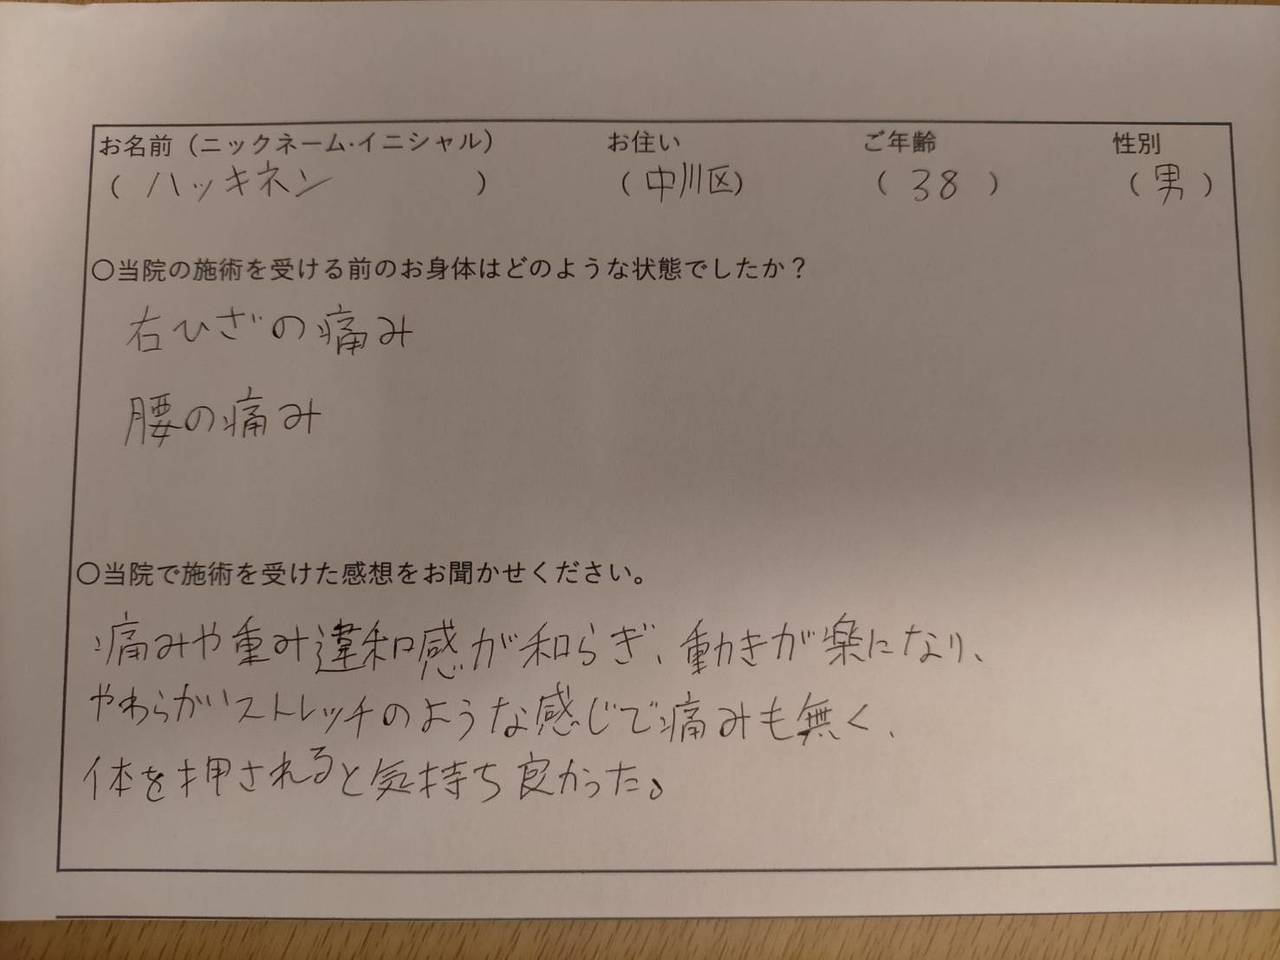 お名前（ニックネーム・イニシャル） お住い ご年齢 性別
（ ハッキネン ） （ 中川区） （ 38 ） （ 男 ）
〇当院の施術を受ける前のお身体はどのような状態でしたか？
右ひざの痛み
腰の痛み
〇当院で施術を受けた感想をお聞かせください。
痛みや重み違和感が和らぎ、動きが楽になり、
やわらかいストレッチのような感じで痛みも無く、
体を押されると気持ち良かった。